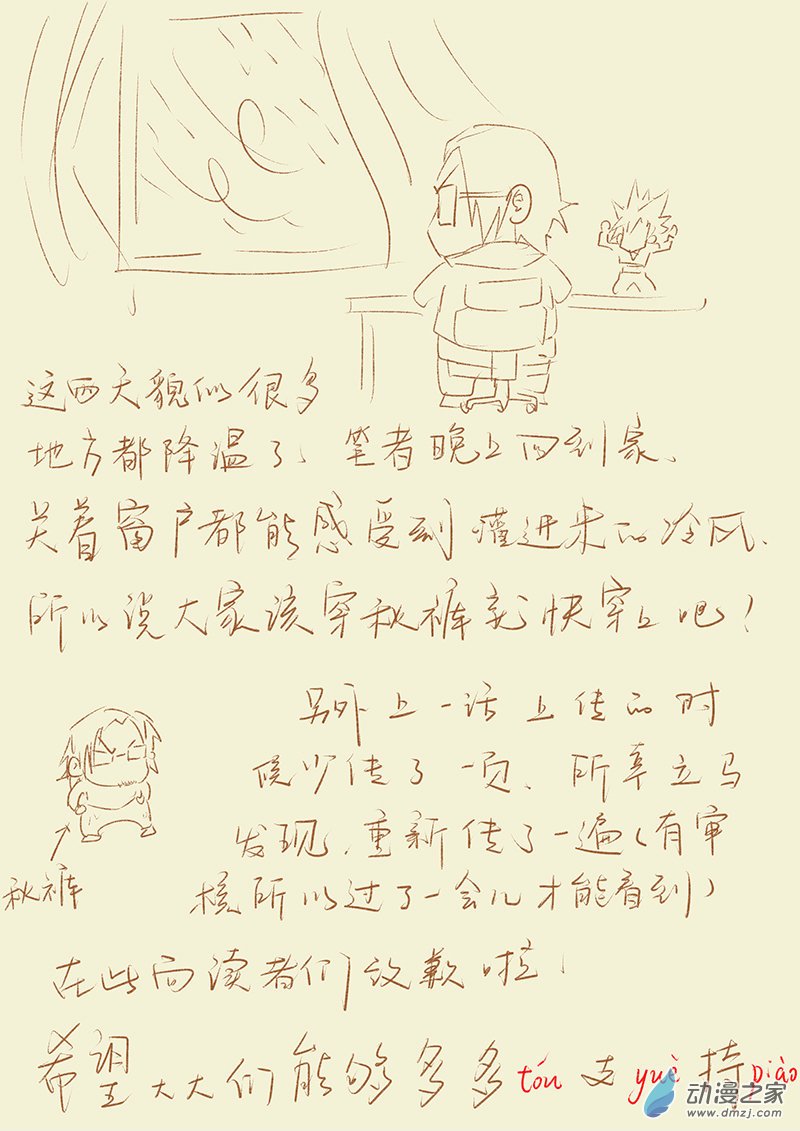 这两天貌似很多
地方都降温了、笔者晚上回到家、
关着窗户都能感受到灌进来的冷风、
所以说大家该穿秋裤就快穿上吧！
另外上一话上传的时
候少传了一页、所幸立马
发现、重新传了一遍（有审
核所以过了一会儿才能看到）
秋裤
在此向读者们致歉啦！
希望大大们能够多多tóu支yuè持piào
动漫之家
www.dmzj.com